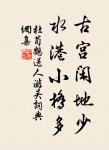 古宮閑地少
水港小橋多
杜荀鶴送人游吳詞典
網集